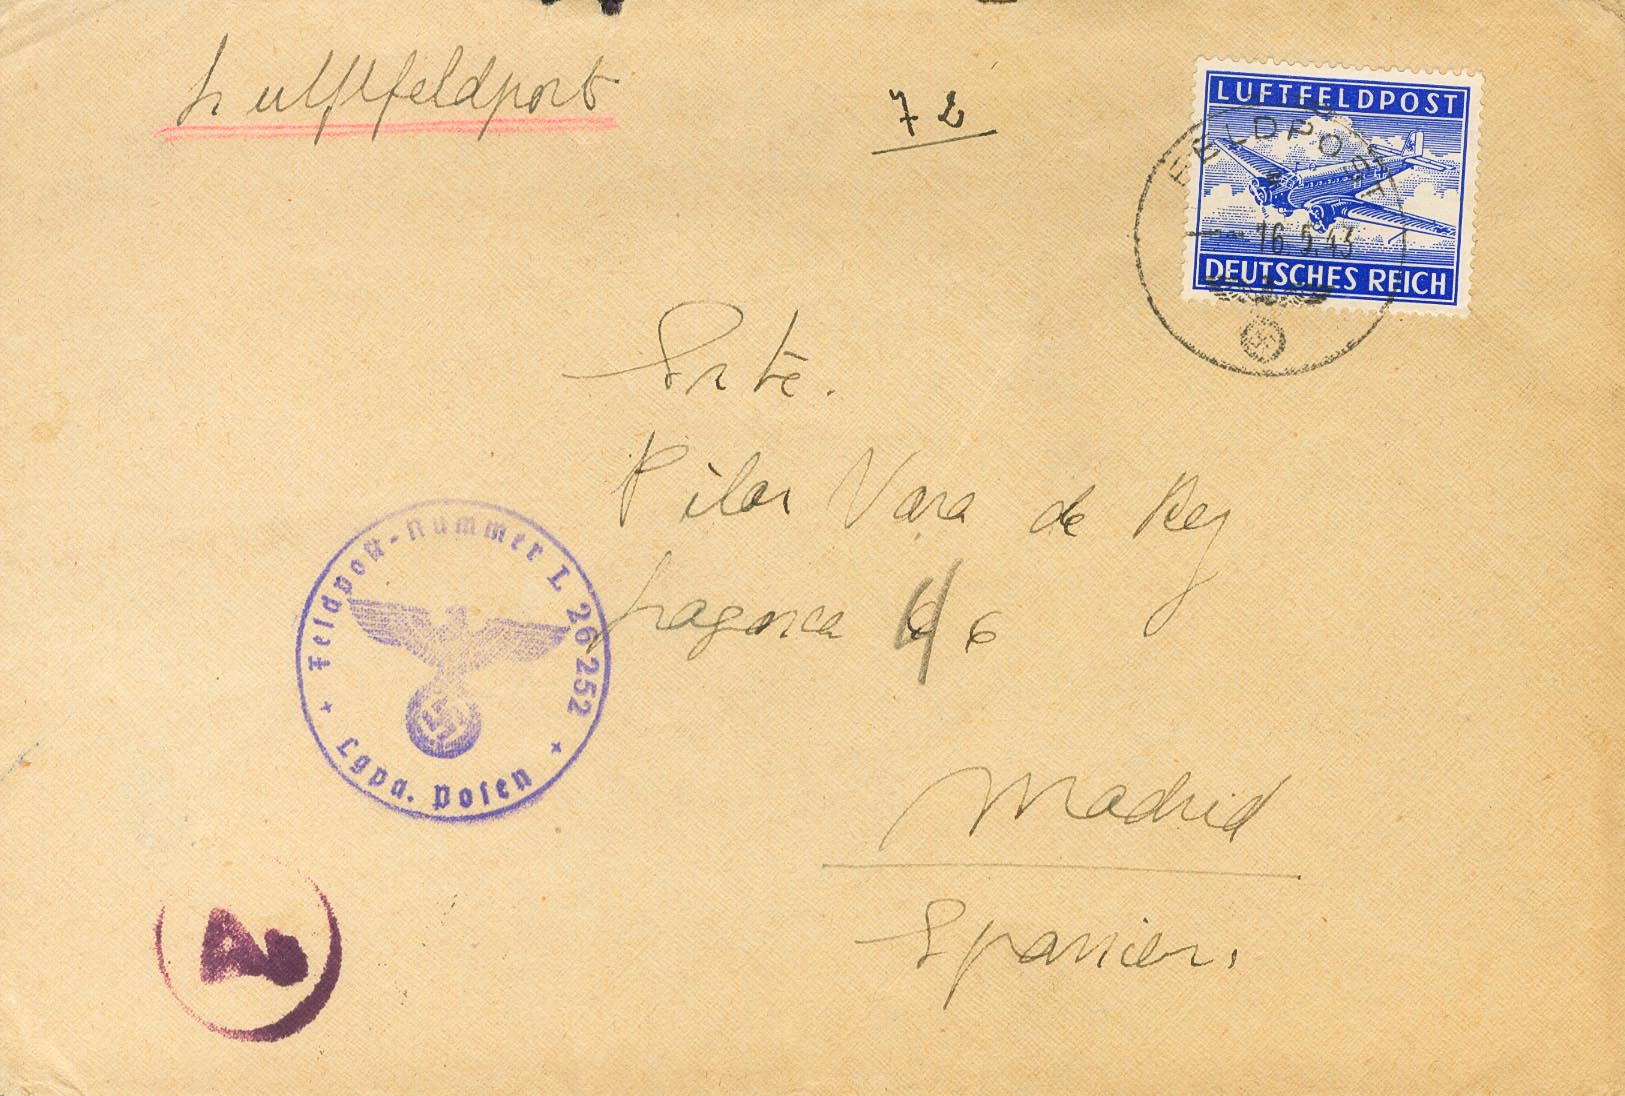 Luftfeldpost
72
LUFTFELDPOST
FELDPOST
16.5.43
DEUTSCHES REICH
Srta.
Pilar Vara de Rey
Lagasca 6
Madrid
Spanien.
Feldpost-Nummer L 26252
Lgpa. Posen